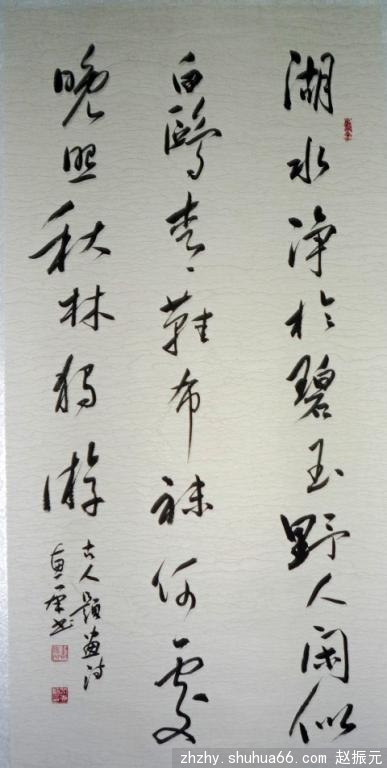 湖水净於碧玉野人闲似
白鷗青鞋布袜何處
晚照秋林獨游
古人題畫詩
zhzhy.shuhua66.com 赵振元